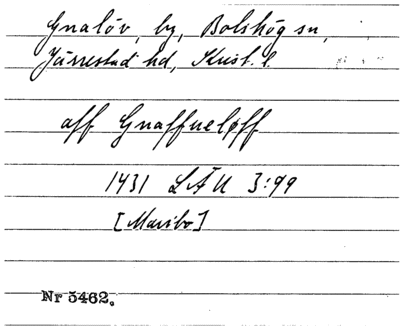 Gnalöv, by, Bolshög sn,
Järrestad hd, Krist. l.
aff Gnaffueløff
1431 LÄU 3:99
[Maribo]
Nr 5462.